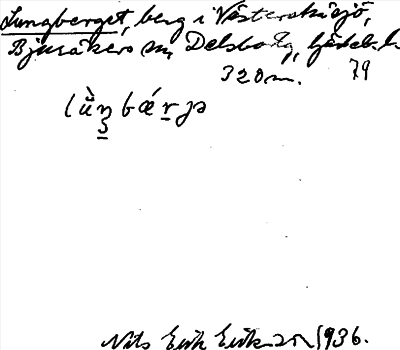 Lungberget, berg i Västerskisjö,
Bjuråkers sn, Delsbo tg,
320m. 79
Nils Erik Eriksson 1936.